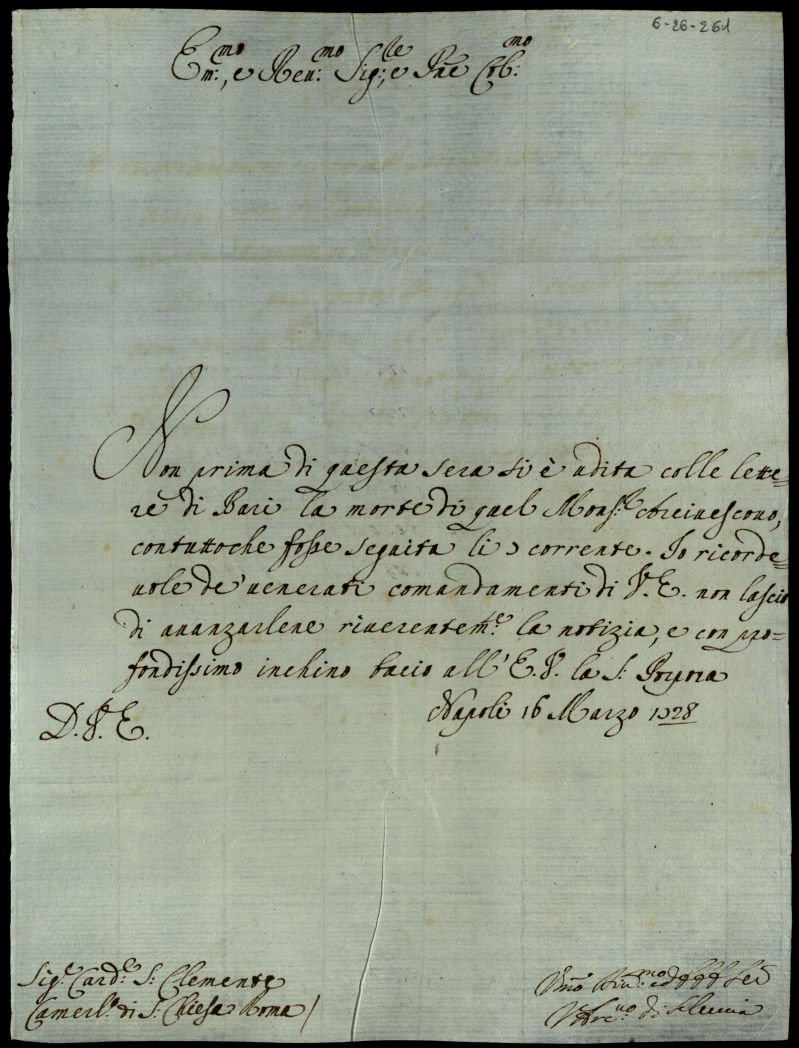 6-26-261
Em:mo, e Reu:mo Sig:re, e Pne Col:mo
Non prima di questa sera si è udita colle lette=
re di Bari la morte di quel Mons:r Arciuescouo,
contuttoche fosse seguita li 7 corrente. Io ricorde=
uole de' uenerati comandamenti di V. E. non lascio
di auanzarlene riuerentem:te la notizia, e con pro=
fondissimo inchino bacio all' E. V. la S: Porpora
Napoli 16 Marzo 1728
D. V. E.
Sig:r Card:e S: Clemente
Camerl:o di S: Chiesa Roma /
Vmo
di